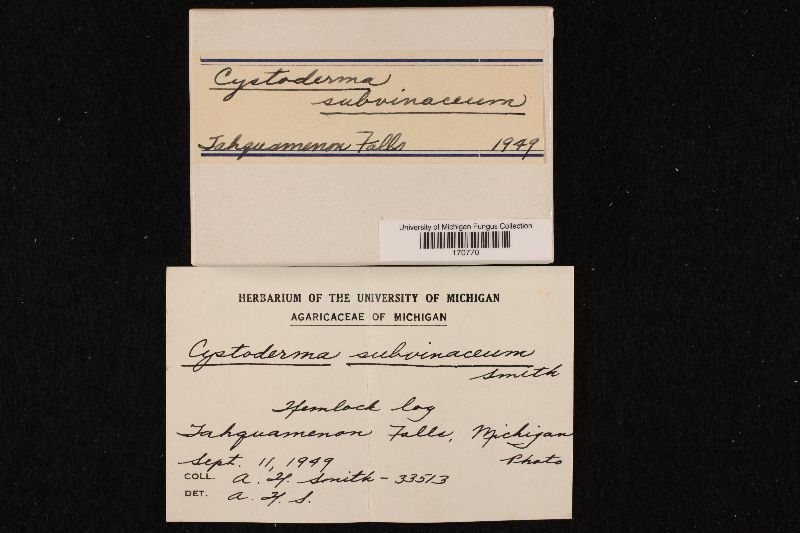 Cystoderma
subvinaceum
Tahquamenon Falls 1949
University of Michigan Fungus Collection
170770
HERBARIUM OF THE UNIVERSITY OF MICHIGAN
AGARICACEAE OF MICHIGAN
Cystoderma subvinaceum
Smith
Hemlock log
Tahquamenon Falls, Michigan
Sept. 11, 1949 Photo
COLL. A. H. Smith - 33513
DET. A. H. S.